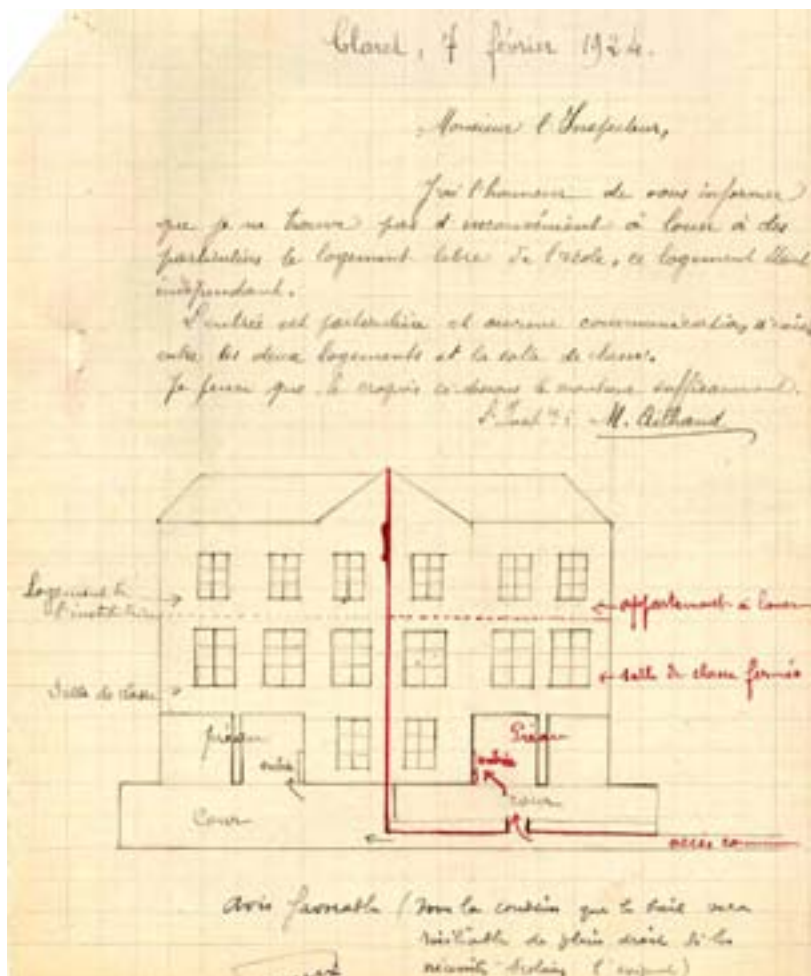 Claret, 7 février 1924.
Monsieur l'Inspecteur,
J'ai l'honneur de vous informer
que je ne trouve pas d'inconvénient à louer à des
particuliers le logement libre de l'école, ce logement étant
indépendant.
L'entrée est particulière et aucune communication
entre les deux logements et la salle de classe.
Je pense que le croquis ci-dessous le montrera suffisamment.
M. Authaud
Logement de
l'instituteur
appartement à louer
Salle de classe
salle de classe fermée
préau
Préau
entrée
entrée
Cour
cour
accès
Avis favorable (sous la condition que le bail sera
résiliable de plein droit si les